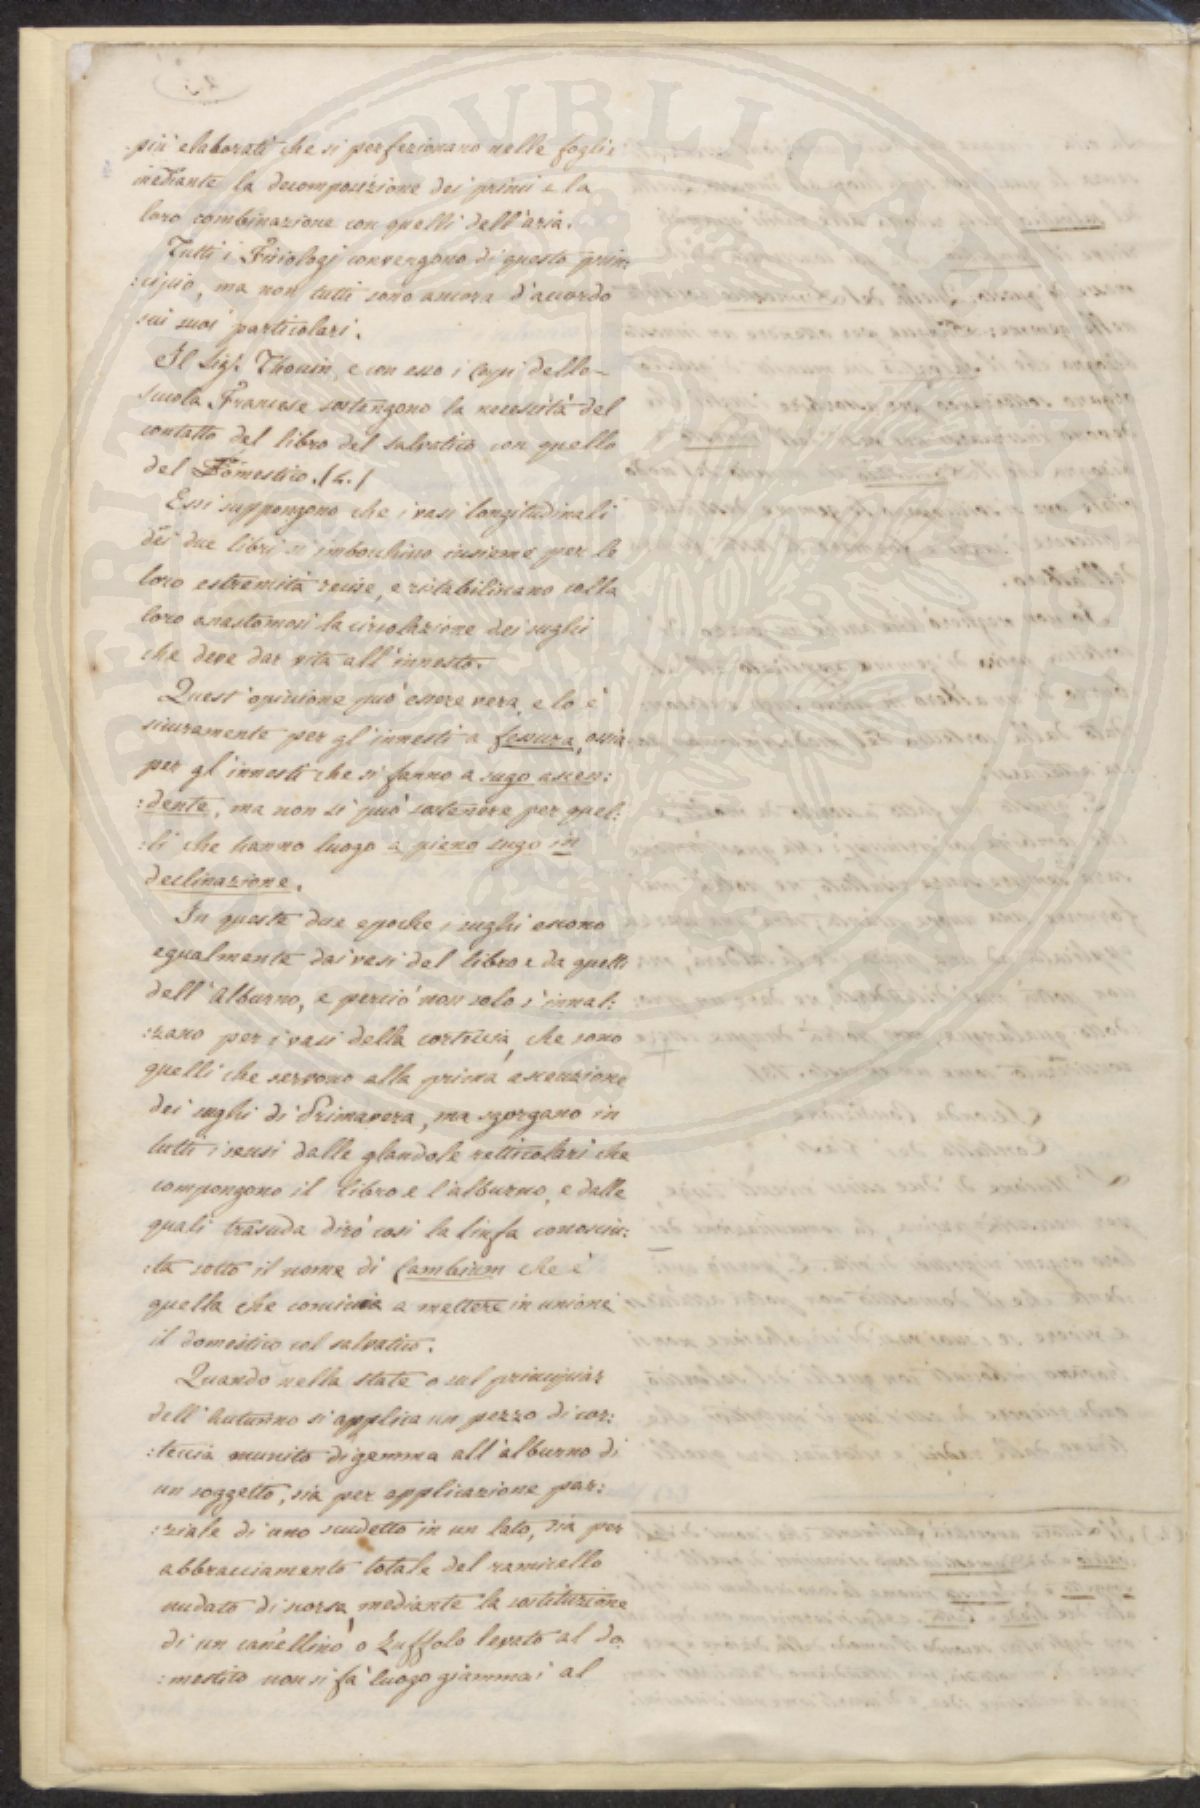 più elaborati che si perfezionano nelle foglie
mediante la decomposizione dei primi e la
loro combinazione con quelli dell'aria.
Tutti i Fisiologj convengono di questo prin:
:cipio, ma non tutti sono ancora d'accordo
sui suoi particolari.
Il Sigr. Thouin, e con esso i Capi della
scuola Francese sostengono la necessità del
contatto del libro del salvatico con quello
del Domestico. (4.)
Essi suppongono che i vasi longitudinali
dei due libri si imbocchino insieme per le
loro estremità recise, e ristabiliscano colla
loro anastomosi la circolazione dei sughi
che deve dar vita all'innesto.
Quest'opinione può essere vera, e lo è
sicuramente per gl'innesti a fessura, ossia
per gl'innesti che si fanno a sugo ascen:
:dente, ma non si può sostenere per quel:
:li che hanno luogo a pieno sugo in
declinazione.
In queste due epoche i sughi escono
egualmente dai vasi del libro e da quelli
dell'Alburno, e perciò non solo s'innal:
:zano per i vasi della corteccia, che sono
quelli che servono alla prima ascenzione
dei sughi di Primavera, ma sgorgano in
tutti i sensi dalle glandole retticolari che
compongono il Libro e l'alburno, e dalle
quali trasuda dirò così la linfa conosciu:
:ta sotto il nome di Cambium che è
quella che comincia a mettere in unione
il domestico col salvatico.
Quando nella state o sul principiar
dell'Autunno si applica un pezzo di cor:
:teccia munito di gemma all'alburno di
un soggetto, sia per applicazione par:
:ziale di uno scudetto in un lato, sia per
abbracciamento totale del ramicello
nudato di scorsa, mediante la sostituzione
di un canellino o Zuffolo levato al do:
:mestico non si fà luogo giammai al